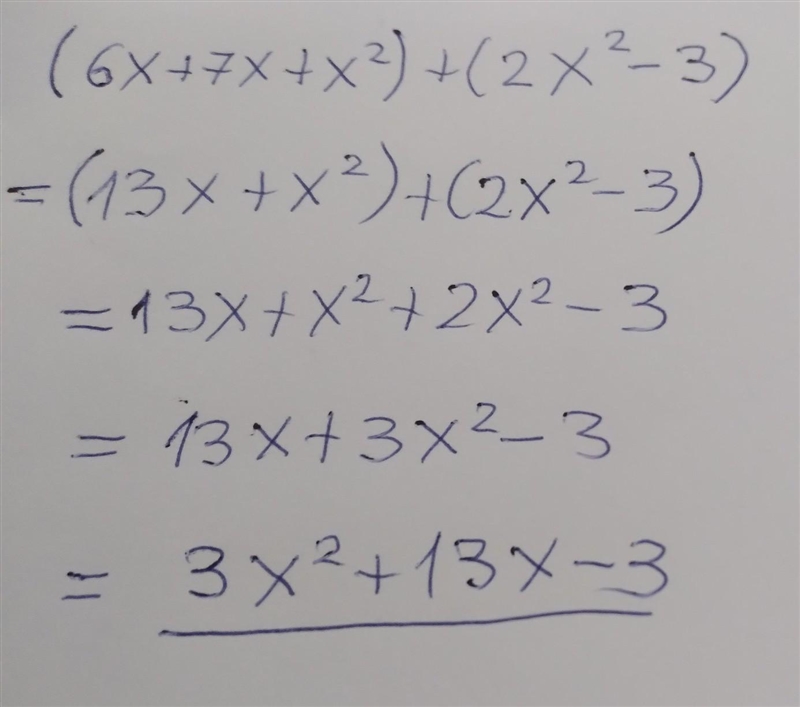 (6x+7x+x²)+(2x²-3)
=(13x+x²)+(2x²-3)
=13x+x²+2x²-3
=13x+3x²-3
=3x²+13x-3